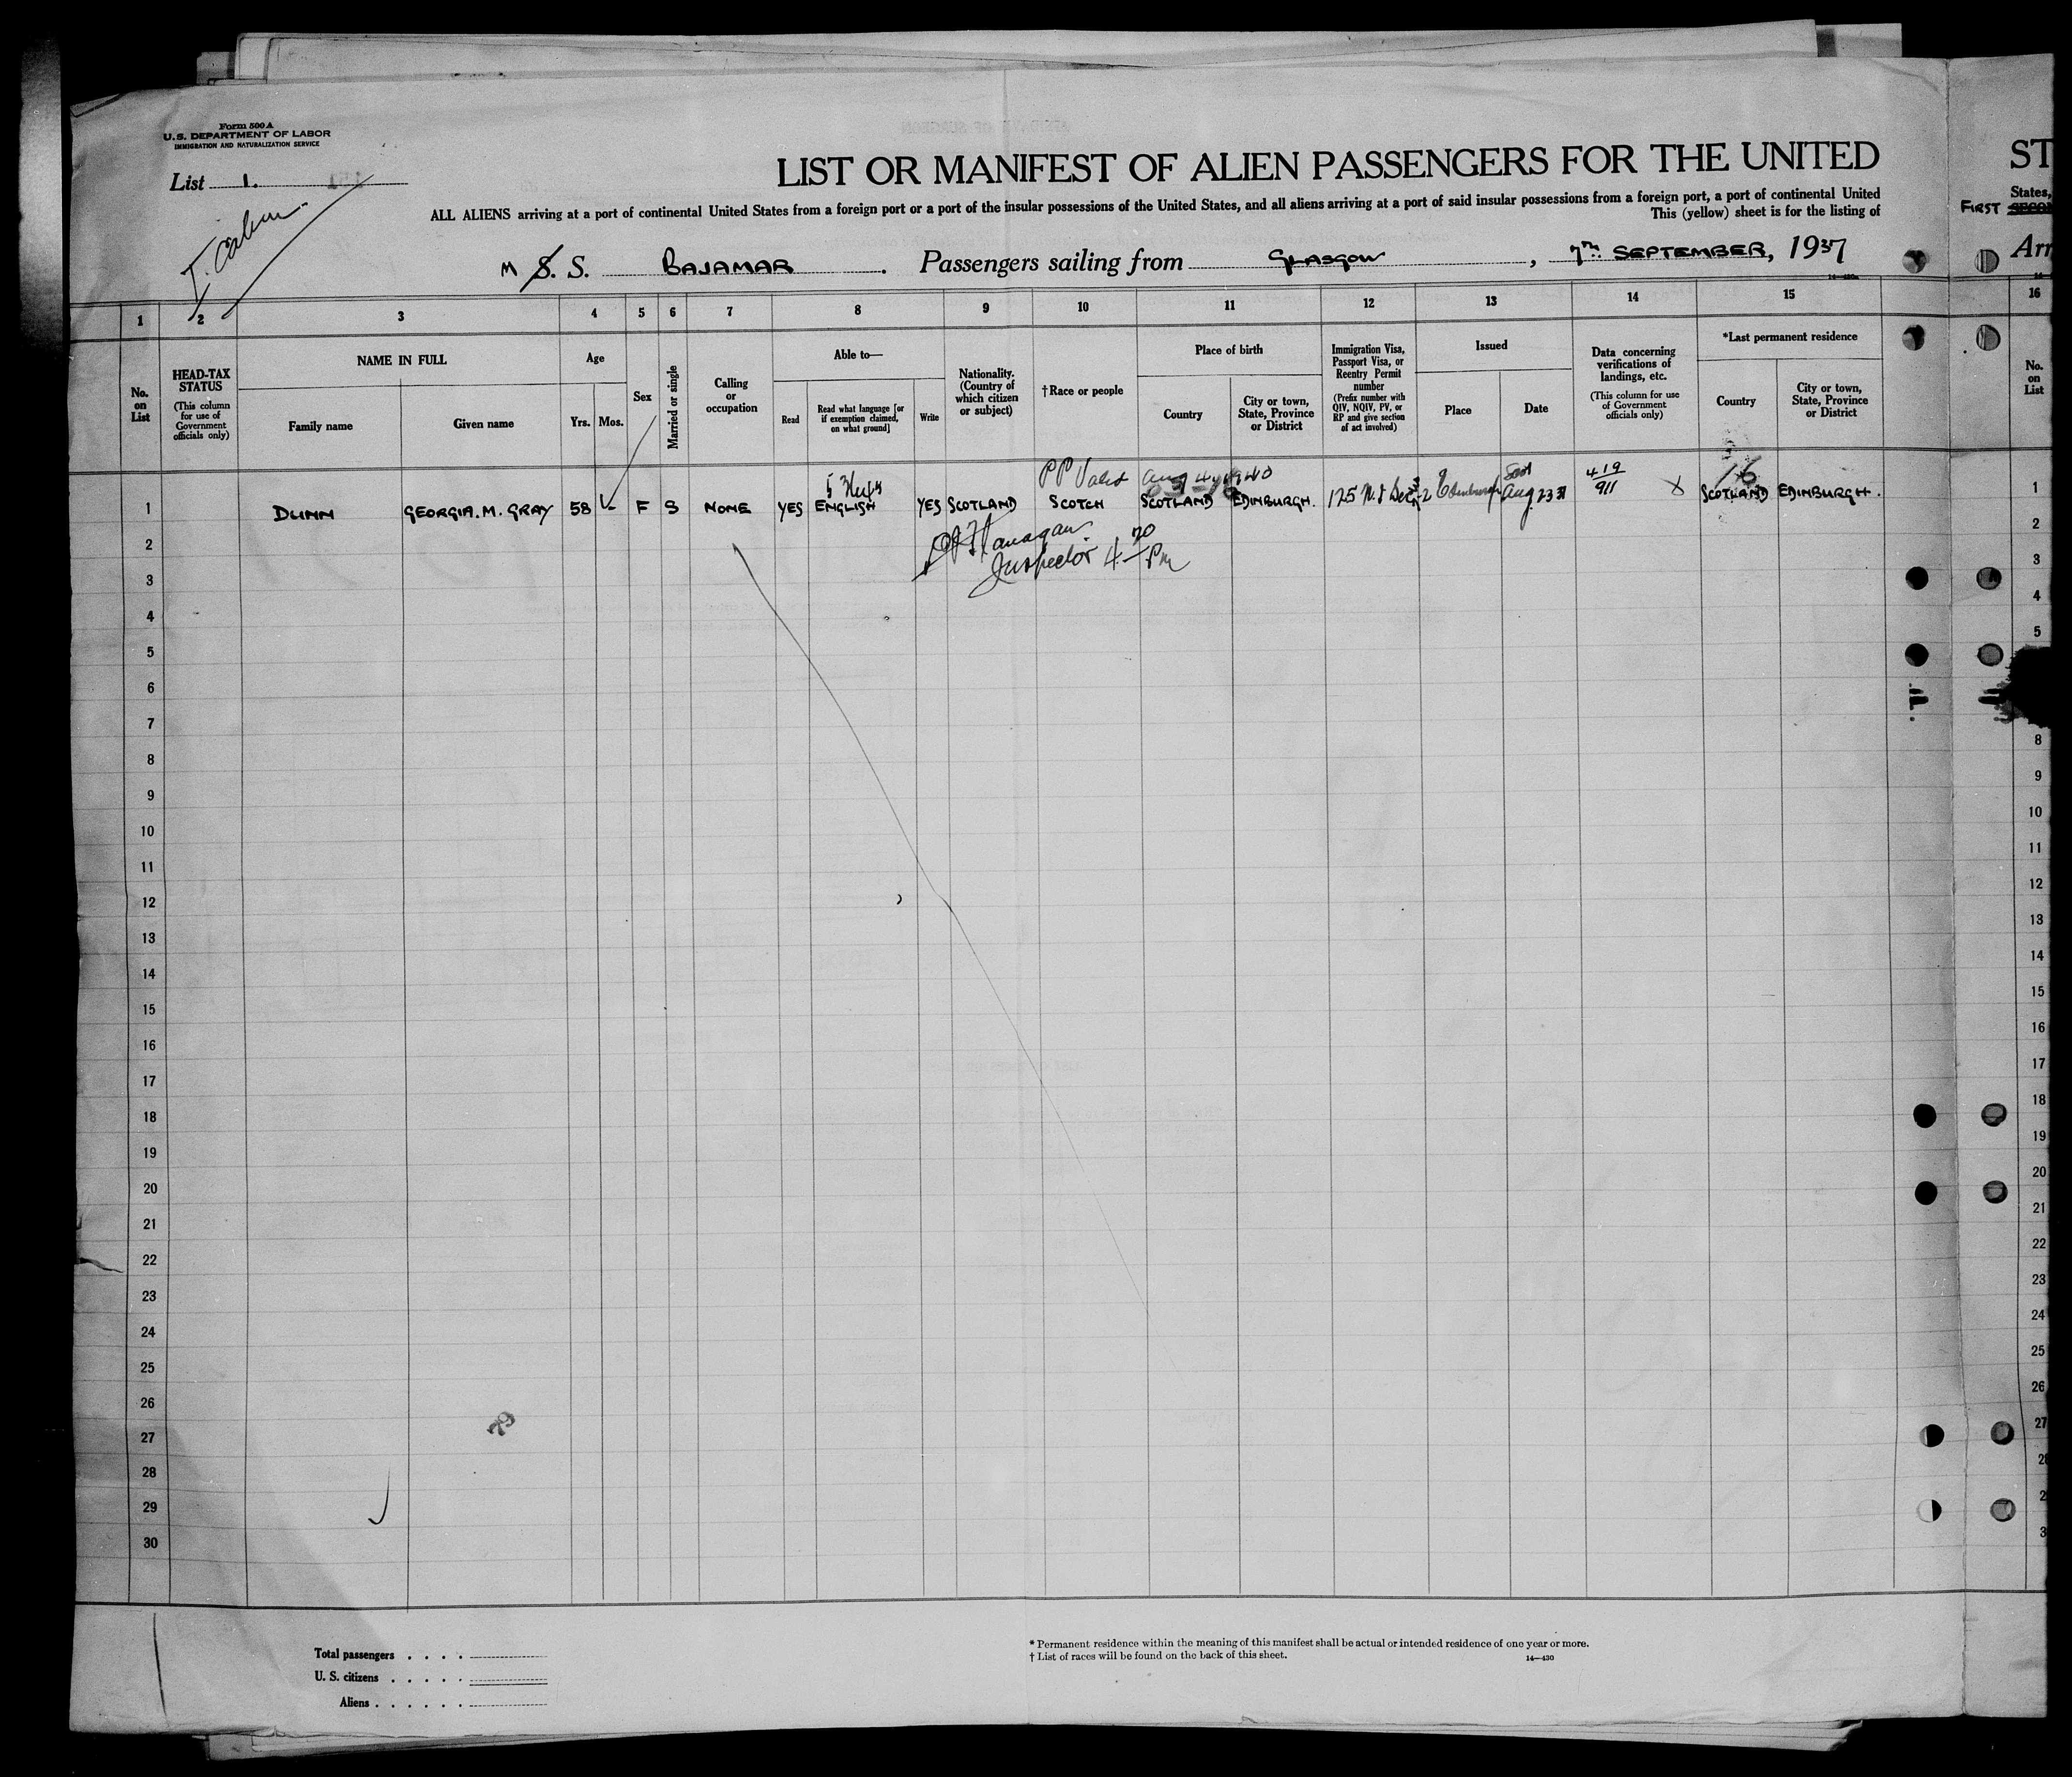 Form 500 A
U.S. DEPARTMENT OF LABOR
IMMIGRATION AND NATURALIZATION SERVICE
List 1.
LIST OR MANIFEST OF ALIEN PASSENGERS FOR THE UNITED
ST
ALL ALIENS arriving at a port of continental United States from a foreign port or a port of the insular possessions of the United States, and all aliens arriving at a port of said insular possessions from a foreign port, a port of continental United
States,
This (yellow) sheet is for the listing of
FIRST
M S. S. BAJAMAR. Passengers sailing from GLASGOW, 7TH SEPTEMBER, 1937
Arr
1 2 3 4 5 6 7 8 9 10 11 12 13 14 15 16
No. on List
HEAD-TAX STATUS (This column for use of Government officials only)
NAME IN FULL
Family name
Given name
Age
Yrs.
Mos.
Sex
Married or single
Calling or occupation
Able to—
Read
Read what language [or if exemption claimed, on what ground]
Write
Nationality. (Country of which citizen or subject)
†Race or people
Place of birth
Country
City or town, State, Province or District
Immigration Visa, Passport Visa, or Reentry Permit number (Prefix number with QIV, NQIV, PV, or RP and give section of act involved)
Issued
Place
Date
Data concerning verifications of landings, etc. (This column for use of Government officials only)
*Last permanent residence
Country
City or town, State, Province or District
No. on List
PP Valid Aug 4 1940
1 DUNN GEORGIA. M. GRAY 58 F S NONE YES ENGLISH YES SCOTLAND SCOTCH SCOTLAND EDINBURGH. 125 Edinburgh Aug 23 37 419 911 X SCOTLAND EDINBURGH. 1
Inspector 4 20 Pm
2 2
3 3
4 4
5 5
6
7
8 8
9 9
10 10
11 11
12 12
13 13
14 14
15 15
16 16
17 17
18 18
19 19
20 20
21 21
22 22
23 23
24 24
25 25
26 26
27 27
28
29
30
Total passengers . . . .
U. S. citizens . . . . .
Aliens . . . . . .
* Permanent residence within the meaning of this manifest shall be actual or intended residence of one year or more.
† List of races will be found on the back of this sheet.
14—430